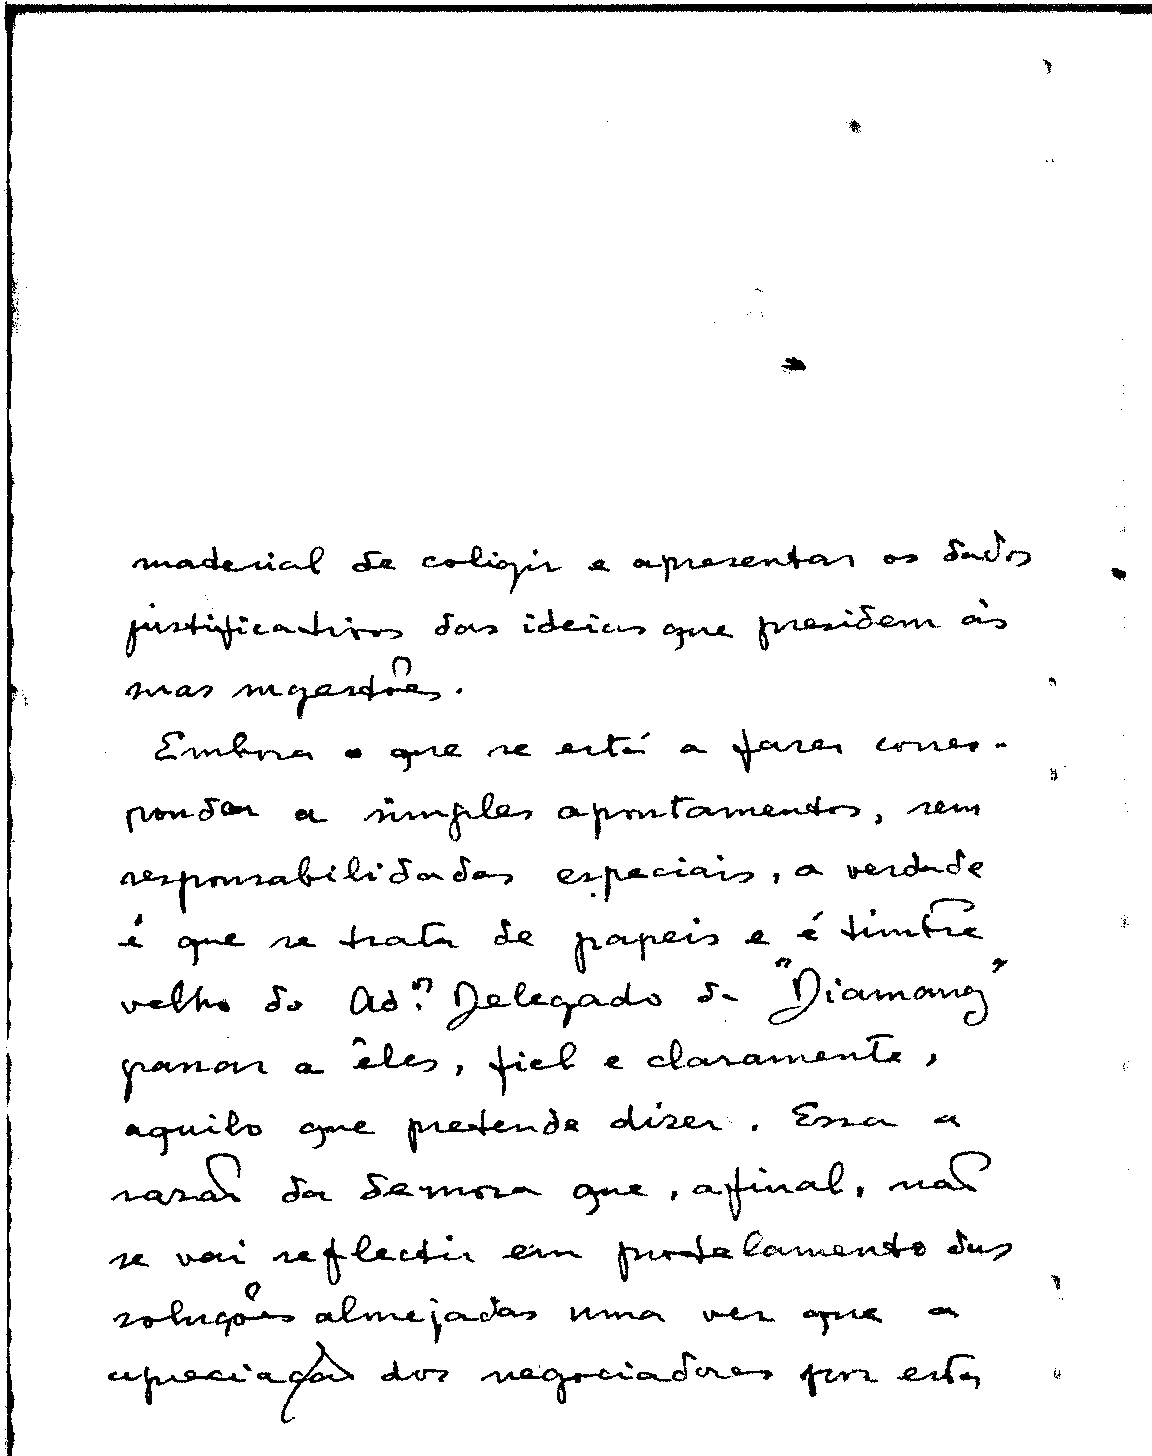 material de coligir e apresentar os dados
justificativos das ideias que presidem às
suas sugestões.
Embora o que se está a fazer corres-
ponder a simples apontamentos, sem
responsabilidades especiais, a verdade
é que se trata de papeis e é timbre
velho do Ad.ºr Delegado da "Diamang"
passar a êles, fiel e claramente,
aquilo que pretende dizer. Essa a
razão da demora que, afinal, não
se vai reflectir em protelamento das
soluções almejadas uma vez que a
apreciação dos negociadores por estes